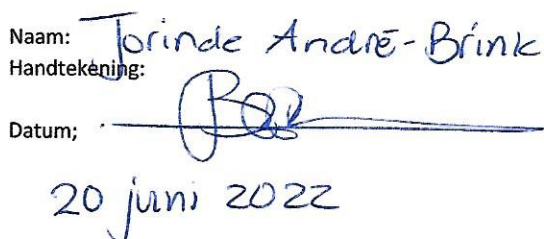 Naam: Jorinde André-Brink
Handtekening:
Datum;
20 juni 2022